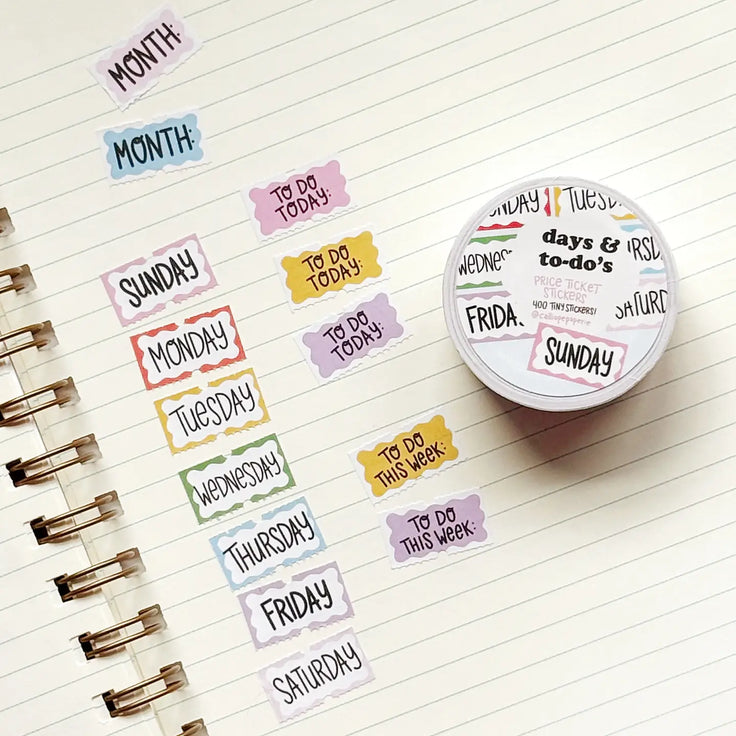 MONTH:
MONTH:
TO DO
TODAY:
TO DO
TODAY:
TO DO
TODAY:
SUNDAY
MONDAY
TUESDAY
WEDNESDAY
THURSDAY
FRIDAY
SATURDAY
TO DO
THIS WEEK:
TO DO
THIS WEEK:
days &
to-do's
PRICE TICKET
STICKERS
400 TINY STICKERS!
@calliopepaperie
SUNDAY